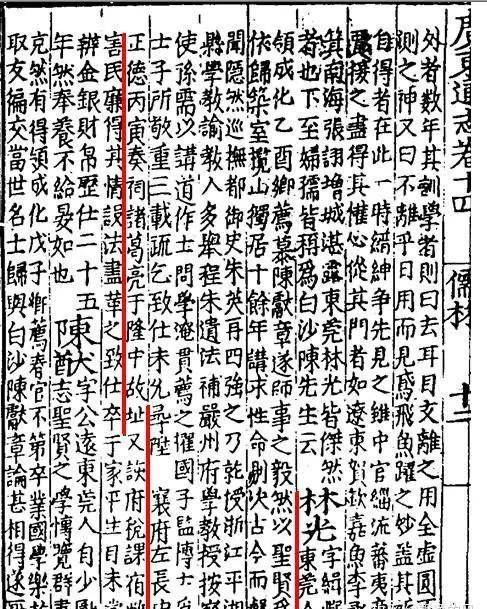 廣東通志卷十四 儒林 十二
外者數年其訓學者則曰去耳目支離之用全虛圓
測之神又曰不離乎日用而見鳶飛魚躍之妙蓋其
自得者在此一時縉紳爭先見之雖中官緇流蕃夷
接之盡得其懽心從其門者如遼東賀欽嘉魚李
南海張詡增城湛露東莞林光皆傑然
者也下至婦孺皆稱為白沙陳先生云 林光 字緝
東莞人
領成化乙酉鄉薦慕陳獻章遂師事之毅然以聖賢
依歸築室欖山獨居十餘年講求性命則次古今而
聞隱然巡撫都御史朱英再四強之乃就授浙江平湖
縣學教諭教人多舉程朱遺法補嚴州府學教授按
使孫需以講道作士問學淹貫薦之擢國子監博士
士子所敬重三載疏乞致仕未允尋陞 襄府左長
正德丙寅奏祠諸葛亮于隆中故址又訣府稅課宿
害民廉得其情設法盡革之致仕卒于家平生目未
辨金銀財帛歷仕二十五 陳猷 字公遠東莞人自少
年然奉養不給晏如也 志聖賢之學博覽群
充然有得領成化戊子鄉薦春官不第卒業國學樂
取友徧交當世名士歸與白沙陳獻章論甚相得遂